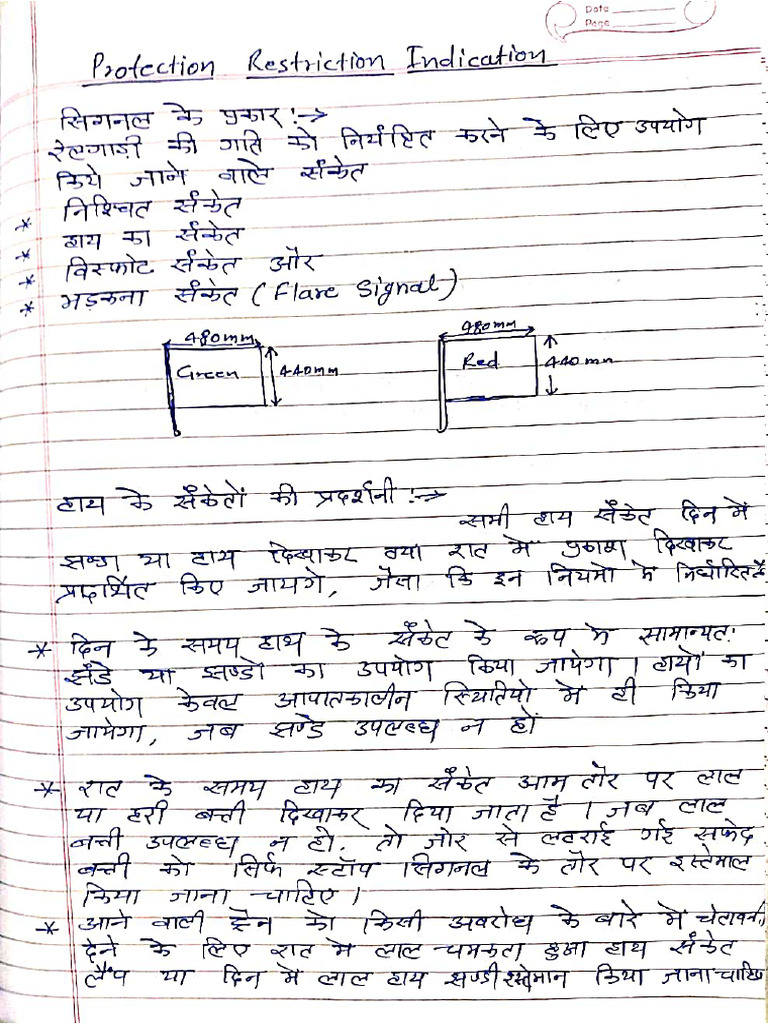 Date
Page
Protection Restriction Indication
सिगनल के प्रकार :→
रेलगाड़ी की गति को नियंत्रित करने के लिए उपयोग
किये जाने वाले संकेत
* निश्चित संकेत
* हाथ का संकेत
* विस्फोट संकेत और
* भड़कना संकेत ( Flare Signal )
480mm 980mm
Green 440mm Red 440mm
हाथ के संकेतों की प्रदर्शनी :→
सभी हाथ संकेत दिन में
झण्डा या हाथ दिखाकर तथा रात में प्रकाश दिखाकर
प्रदर्शित किए जायगे, जैसा कि इन नियमो मे निर्धारित है
* दिन के समय हाथ के संकेत के रूप मे सामान्यत:
झंडे या झण्डो का उपयोग किया जायेगा । हाथों का
उपयोग केवल आपातकालीन स्थितियो मे ही किया
जायेगा, जब झण्डे उपलब्ध न हों
* रात के समय हाथ का संकेत आम तौर पर लाल
या हरी बत्ती दिखाकर दिया जाता है । जब लाल
बत्ती उपलब्ध न हो, तो जोर से लहराई गई सफेद
बत्ती को सिर्फ स्टॉप सिगनल के तौर पर इस्तेमाल
किया जाना चाहिए ।
* आने वाली ट्रेन को किसी अवरोध के बारे मे चेतावनी
देने के लिए रात मे लाल चमकता हुआ हाथ संकेत
लैंप या दिन मे लाल हाथ झण्डी इस्तेमान किया जाना चाहिए